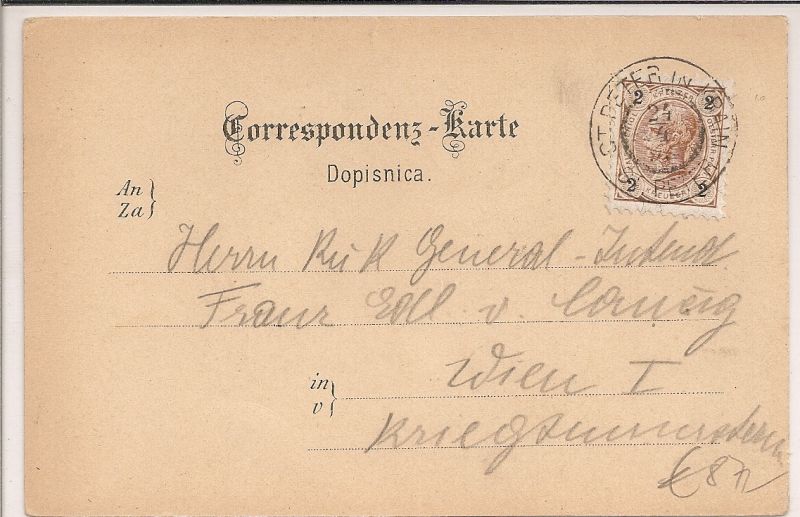 ST. PETER IN KRAIN
24
2 2
2 2
Correspondenz-Karte
Dopisnica.
An
Za
Herrn K u K General-Intend
Franz Edl. v.
in
v
Wien I
Kriegsministerium